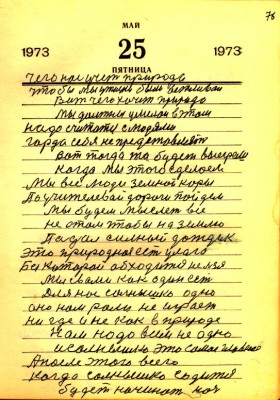 75
МАЙ
1973 25 1973
ПЯТНИЦА
Чего не учит природа
чтобы мы утицы были
Вит чего хочит природа
Мы должны умелои в том
Надо считать слюдями
гарда себя не представляит
вот тогда та будет выеграли
когда мы этого сделоем
Мы все люди земной коры
По учителевай дороги пойдем
Мы будем мыслет все
не о том чтобы на землю
Падал силный дождик
Это природная ест
Без каторай обходится нелзя
Мы свами как один ест
Для нас солнышко одно
оно нам роли не играет
ни где и не как в природе
Нам надо всим не одно
и солнышко это самае
Апосле этого всего
когда солнышко садится
будет начинат ноч